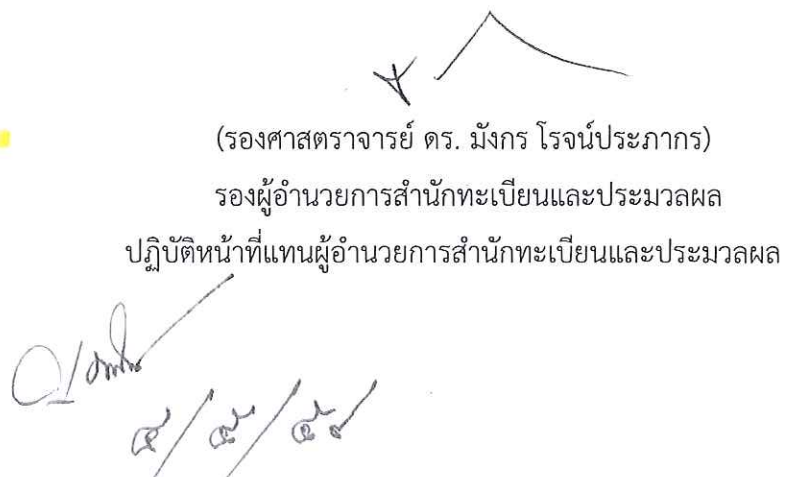 (รองศาสตราจารย์ ดร. มังกร โรจน์ประภากร)
รองผู้อำนวยการสำนักทะเบียนและประมวลผล
ปฏิบัติหน้าที่แทนผู้อำนวยการสำนักทะเบียนและประมวลผล